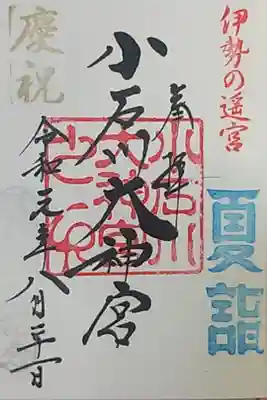 伊勢の遥宮
夏詣
奉拝
小石川大神宮
令和元年八月三十一日
慶祝